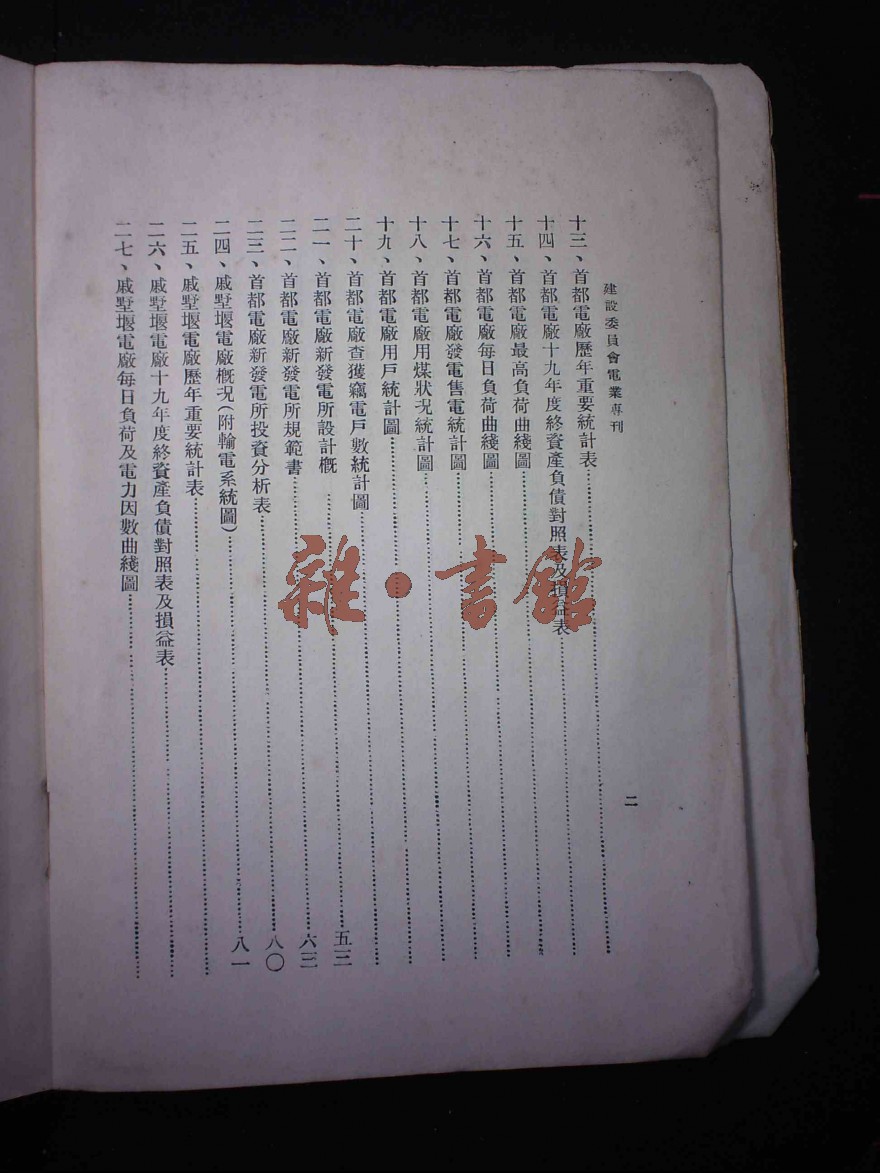 建設委員會電業專刊
二
十三、首都電廠歷年重要統計表
十四、首都電廠十九年度終資產負債對照表及損益表
十五、首都電廠最高負荷曲綫圖
十六、首都電廠每日負荷曲綫圖
十七、首都電廠發電售電統計圖
十八、首都電廠用煤狀况統計圖
十九、首都電廠用戶統計圖
二十、首都電廠查獲竊電戶數統計圖
二一、首都電廠新發電所設計概 五三
二二、首都電廠新發電所規範書 六三
二三、首都電廠新發電所投資分析表 八〇
二四、戚墅堰電廠概况(附輸電系統圖) 八一
二五、戚墅堰電廠歷年重要統計表
二六、戚墅堰電廠十九年度終資產負債對照表及損益表
二七、戚墅堰電廠每日負荷及電力因數曲綫圖
雜·書館